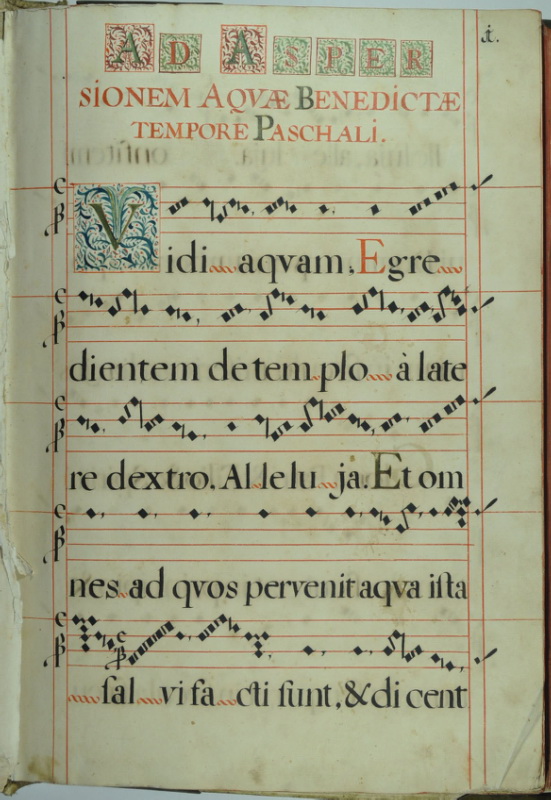 i.
AD ASPER
SIONEM AQVÆ BENEDICTÆ
TEMPORE PASCHALI.
Vidi aqvam: Egre
dientem de templo à late
re dextro. Alleluja. Et om
nes ad qvos pervenit aqva iſta
ſalvi facti ſunt, & dicent